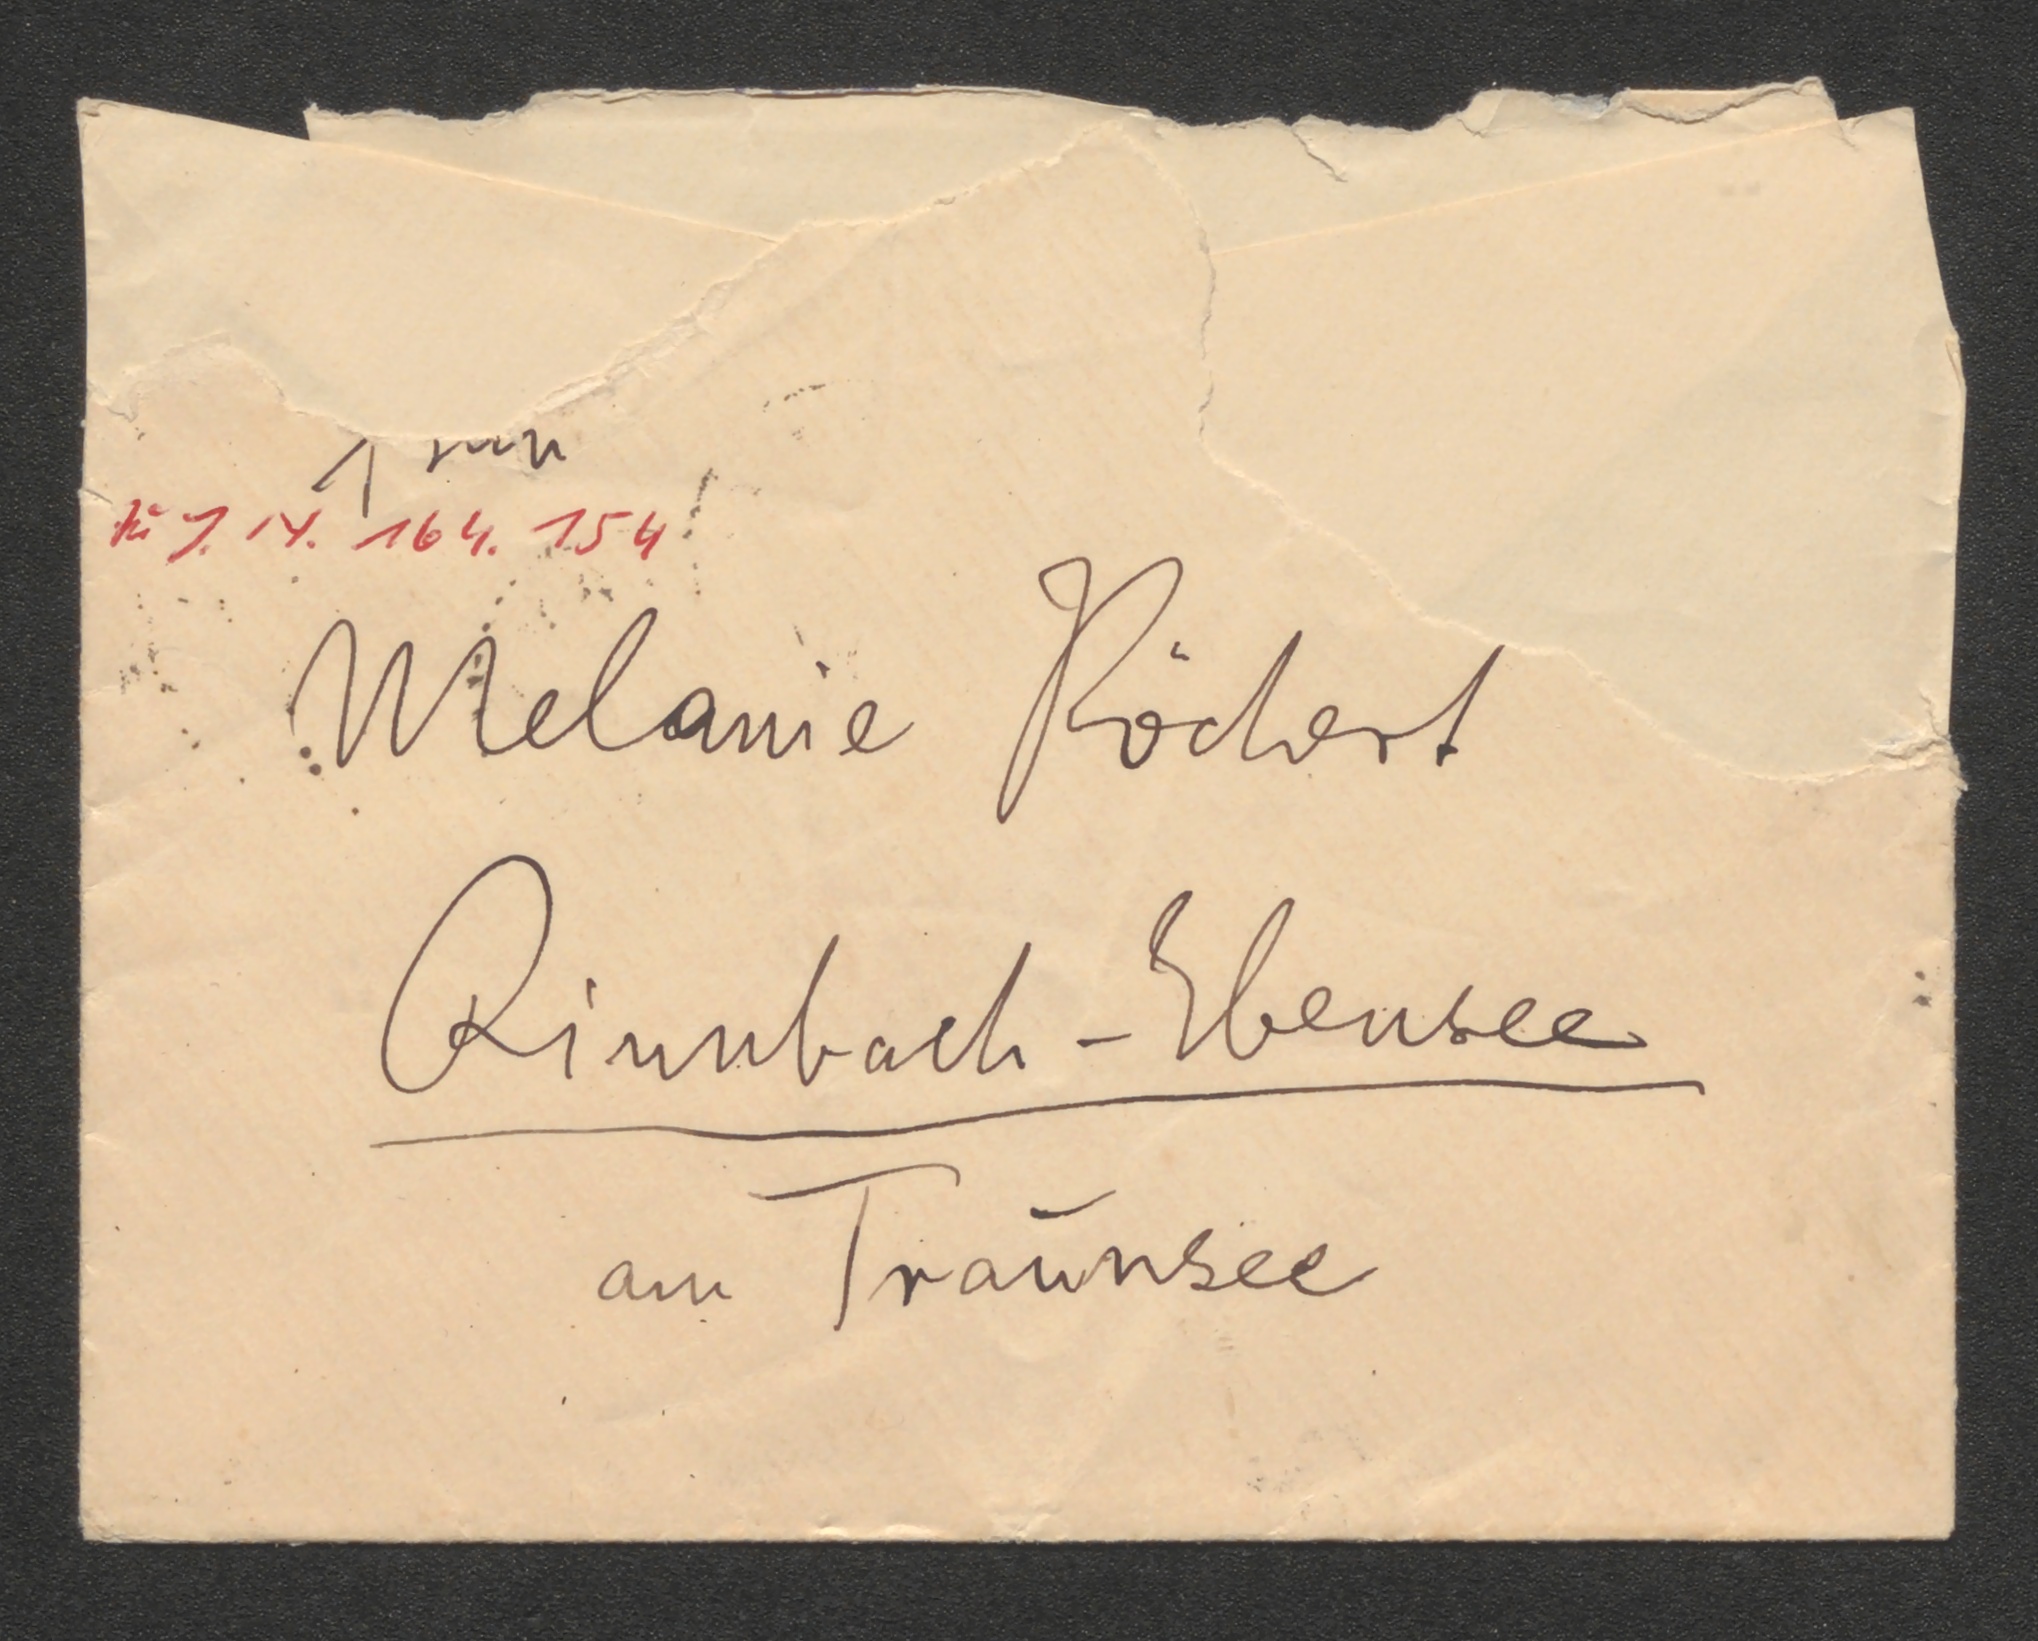 Frau
zu J. N. 164.154
Melanie Köchert
Rinnbach-Ebensee
am Traunsee